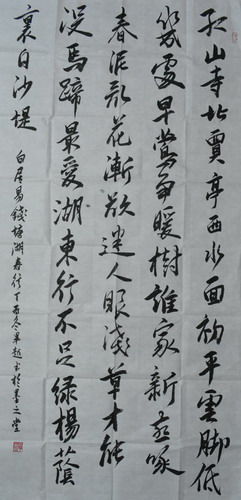 孤山寺北賈亭西水面初平雲脚低
幾處早鶯争暖樹誰家新燕啄
春泥亂花漸欲迷人眼淺草才能
没馬蹄最愛湖東行不足绿楊蔭
裏白沙堤
白居易錢塘湖春行丁酉冬書於之堂